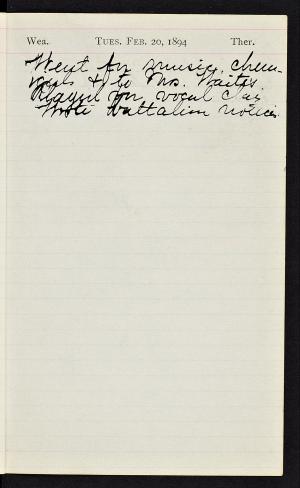 Wea. TUES. FEB. 20, 1894 Ther.
Went for music, chem-
& to Mrs.
Played for vocal
Wrote battalion notices